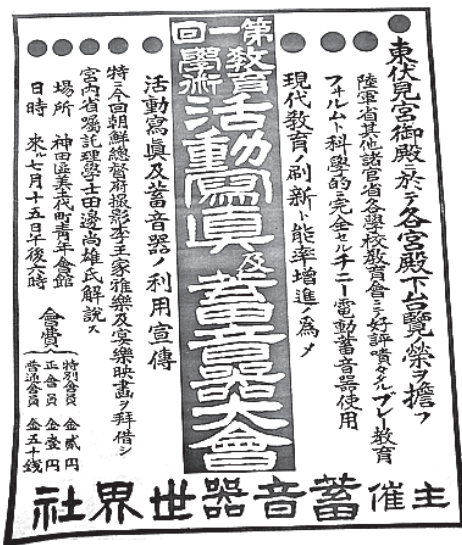 東伏見宮御殿ニ於テ各宮殿下台覽ノ榮ヲ擔フ
陸軍省其他諸官省各學校教育會ニテ好評嘖々タルプレー教育
フォルムト科學的ニ完全セルチニー電動蓄音器使用
現代教育ノ刷新ト能率增進ノ為メ
第一回
教育
學術
活動寫眞及蓄音器大會
活動寫眞及蓄音器ノ利用宣傳
特ニ今回朝鮮總督府撮影李王家雅樂及宴樂映畫ヲ拜借シ
宮内省囑託理學士田邊尚雄氏解說ス
場所 神田區美土代町青年會館
日時 來ル七月十五日午後六時
會費
特別會員 金貳円
正會員 金壹円
普通會員 金五十錢
主催 蓄音器世界社